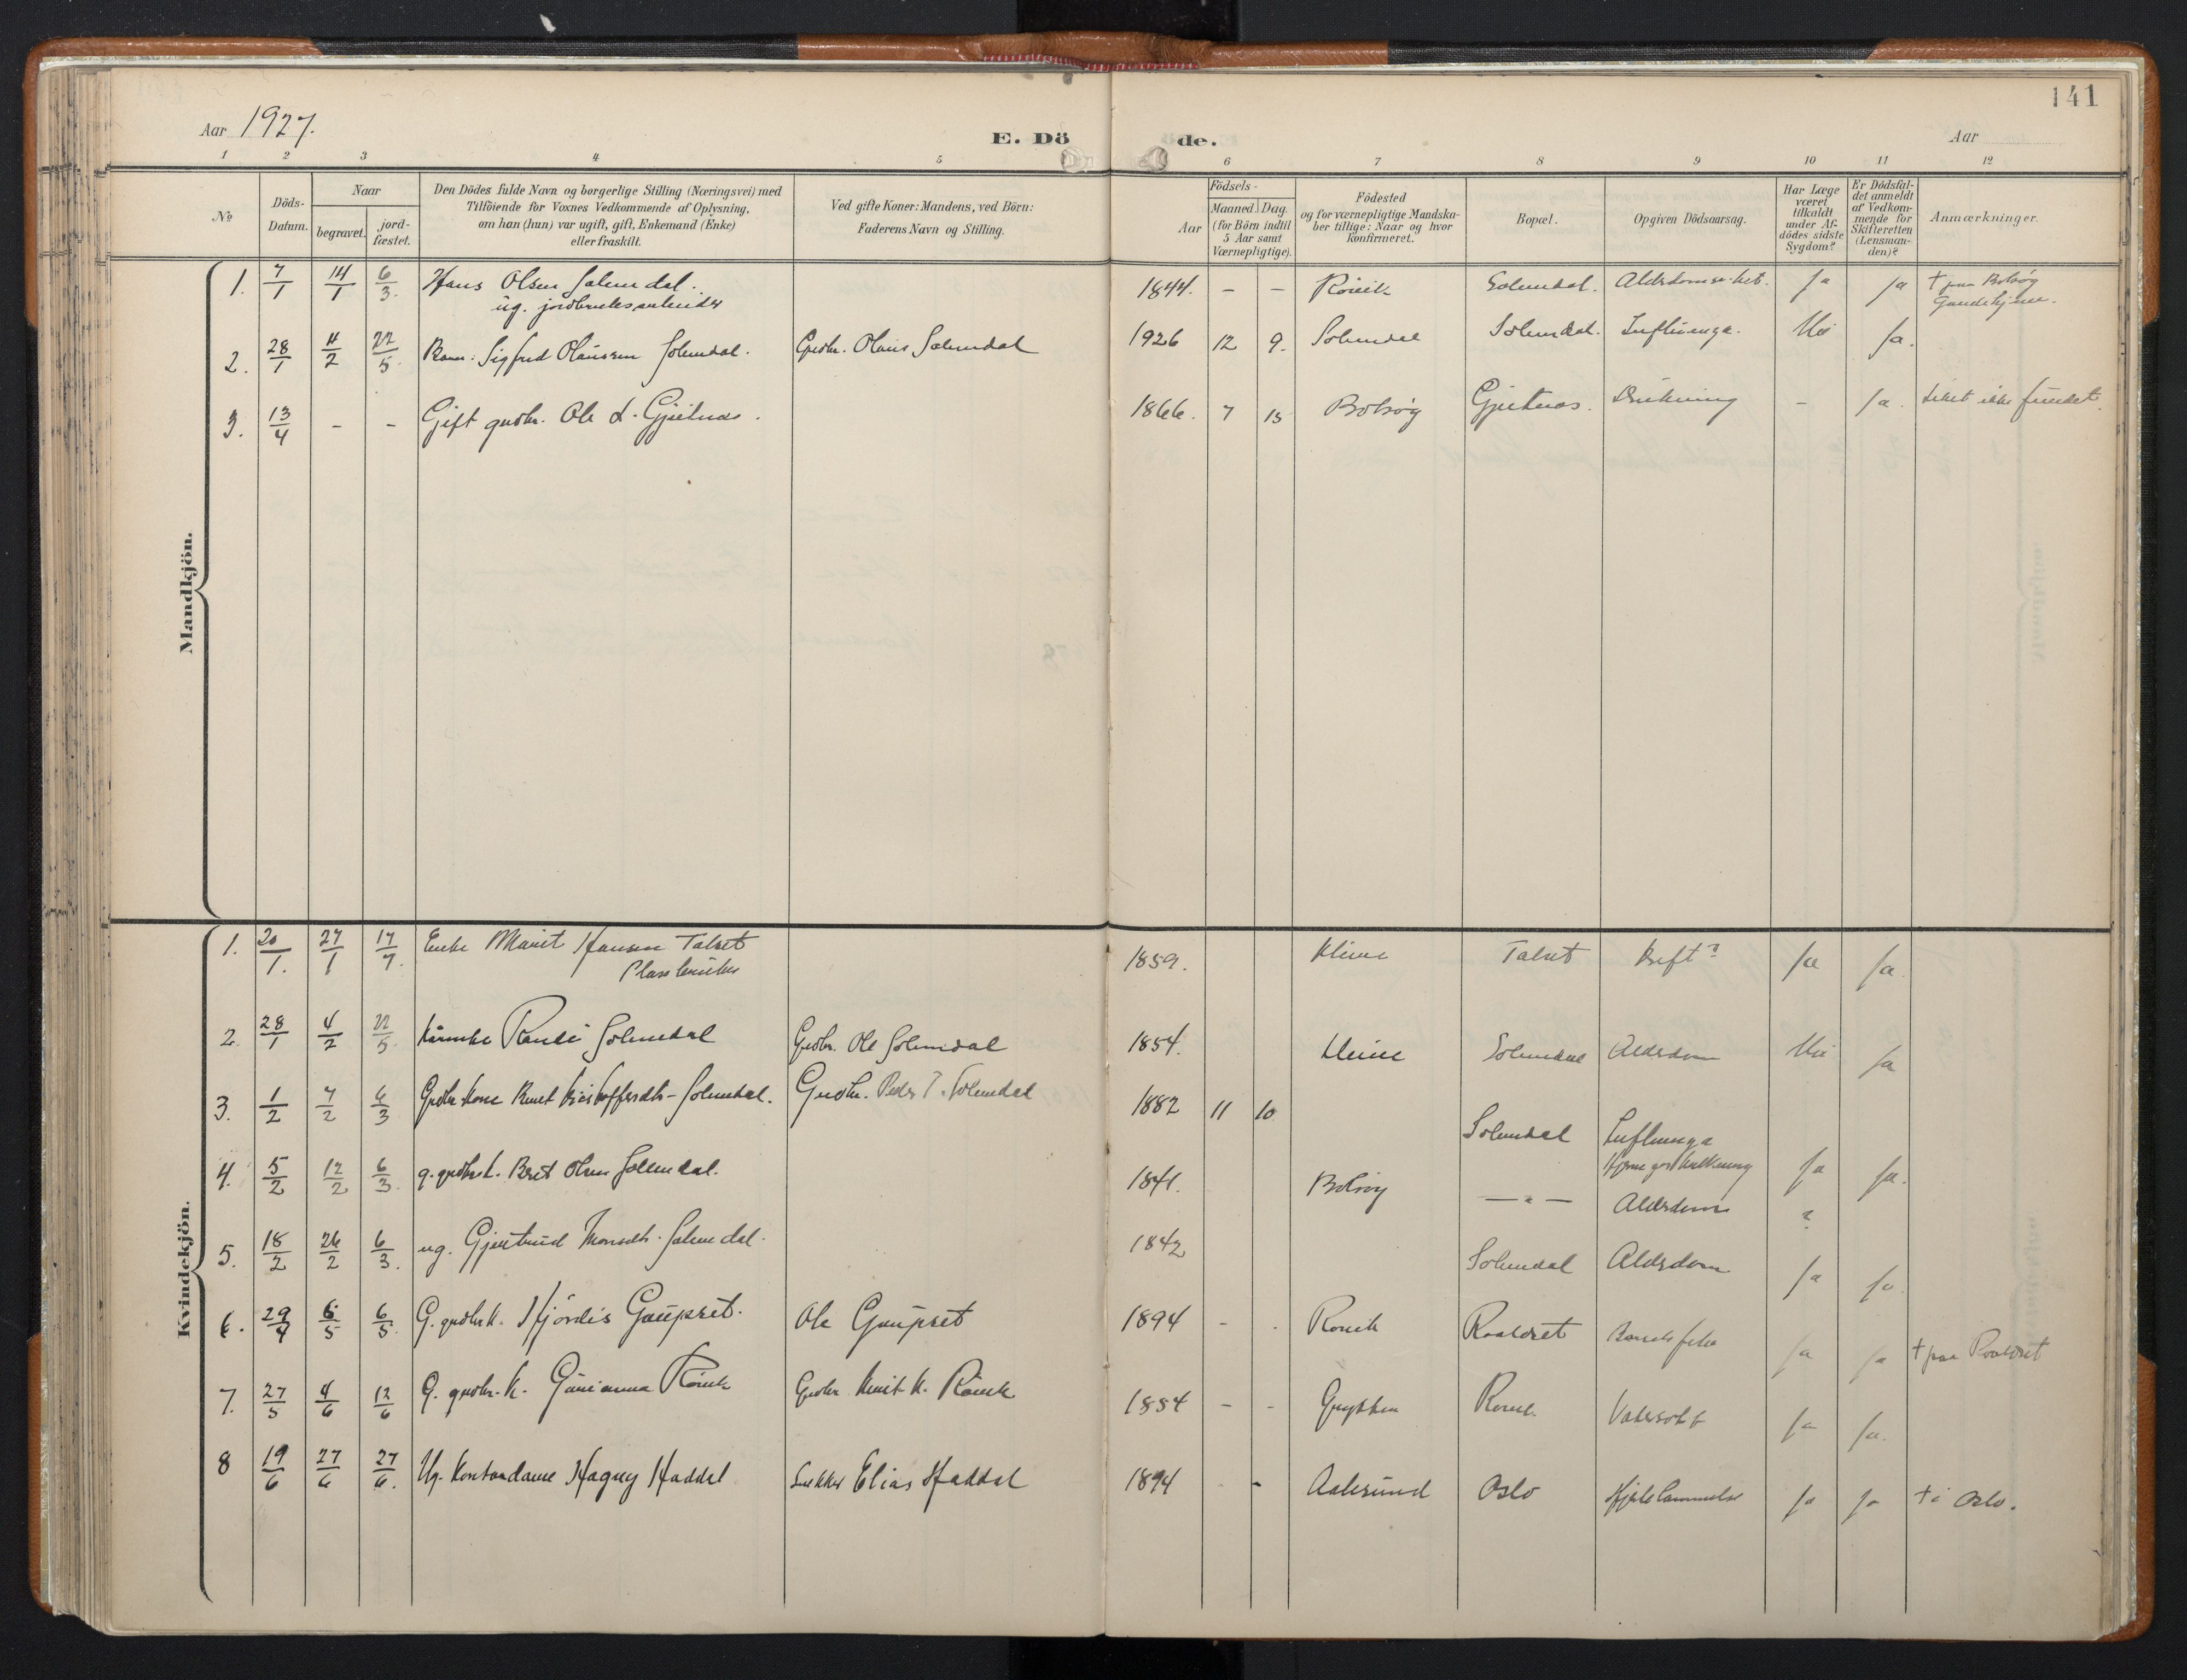 141
Aar 1927.
E. Dö de.
Aar
1 2 3 4 5 6 7 8 9 10 11 12
No
Döds-Datum.
Naar
begravet.
jord-fæstet.
Den Dödes fulde Navn og borgerlige Stilling (Næringsvei) med
Tilföiende for Voxnes Vedkommende af Oplysning,
om han (hun) var ugift, gift, Enkemand (Enke)
eller fraskilt.
Ved gifte Koner: Mandens, ved Börn:
Faderens Navn og Stilling.
Födsels-
Aar
Maaned. Dag.
(for Börn indtil
5 Aar samt
Værnepligtige).
Födested
og for værnepligtige Mandska-
ber tillige: Naar og hvor
konfirmeret.
Bopæl.
Opgiven Dödsaarsag.
Har Læge
været
tilkaldt
under Af-
dödes sidste
Sygdom?
Er Dödsfal-
det anmeldt
af Vedkom-
mende for
Skifteretten
(Lensman-
den)?
Anmærkninger.
Mandkjön.
1. 7/1 14/1 6/3. Hans Olsen Solemdal. 1844. – – Rövik Solemdal. Ja Ja † paa Bolsøy
ug. jordbruksarbeider
2. 28/1 4/2 22/5. Barn: Sigfred Olaussen Solemdal. Grdbr. Olaus Solemdal 1926 12 9. Solemdal Solemdal. Influenza. Nei Ja.
3. 13/4 – – Gift grdbr. Ole L. Gjeitnes. 1866. 7 15 Bolsøy Gjeitnes. Drukning – Ja. Liket ikke fundet.
Kvindekjön.
1. 20/1. 27/1 17/7. Enke Marit Hansen Talset 1859. Kleive Talset Kreft? Ja Ja.
2. 28/1 4/2 22/5. Kårenke Randi Solemdal Grdbr. Ole Solemdal 1854. Kleive Solemdal Alderdom Nei Ja
3. 1/2 7/2 6/3 Grdbr. kone Beret Solemdal. Grdbr. Peder T. Solemdal 1882 11 10 Solemdal Influenza
4. 5/2 12/2 6/3. g. grdbr.k. Beret Olsen Solemdal. 1841. Bolsøy –"– Alderdom ? Ja Ja.
5. 18/2 26/2 6/3. ug. Gjertrud Monsdtr. Solemdal. 1842 Solemdal Alderdom Ja Ja
6. 29/4 6/5 6/5. G. grdbr.k. Hjördis Gaupset. Ole Gaupset 1894 - . Rövik Roaldset Barselfeber Ja Ja † paa Roaldset
7. 27/5 4/6 12/6 G. grdbr.k. Gurianna Rövik Grdbr. Knut K. Rövik 1854 – - Grytten Rövik Vatersott Ja Ja.
8 19/6 27/6 27/6. Ug. Kontordame Hagny Haddal Snekker Elias Haddal 1894 - Aalesund Oslo Hjertelammelse Ja Ja † i Oslo.